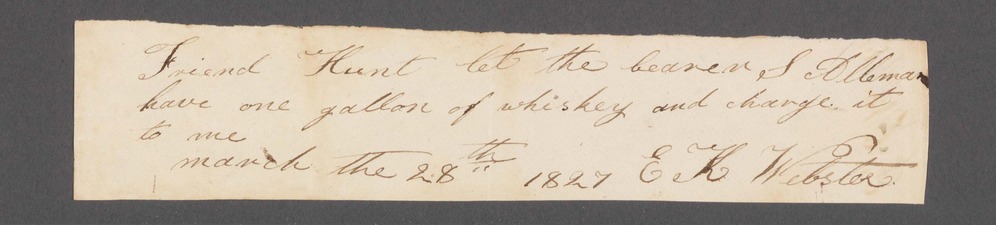 Friend Hunt let the bearer S Alleman
have one gallon of whiskey and charge it
to me
march the 28th 1827 E K Webster